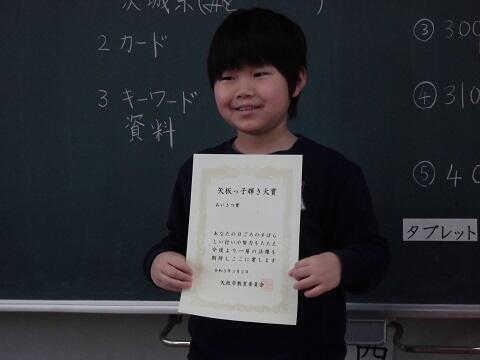 茨城県(
2 カード
3 キーワード
資料
③ 300
④ 310
⑤ 40
タブレット
矢板っ子輝き大賞
あいさつ賞
あなたの日ごろのすばら
しい行いや努力をたたえ
今後より一層の活躍を
期待しここに賞します
令和3年3月2日
矢板市教育委員会
西